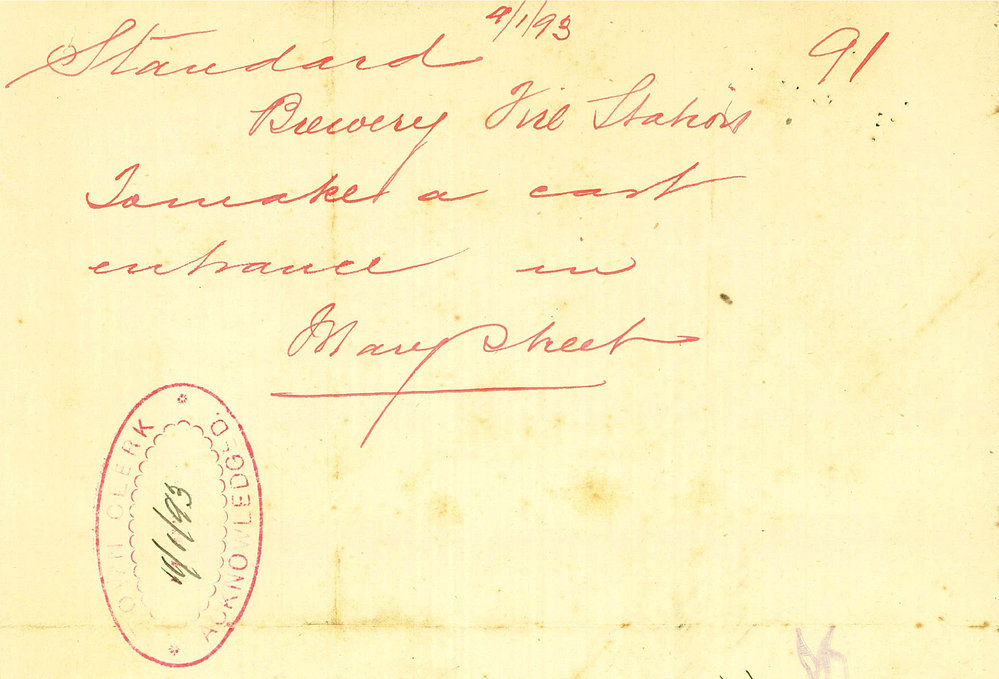 9/1/93
91
Standard
Brewery Fire Station
To make a cart
entrance in
Mary Street
TOWN CLERK
ACKNOWLEDGED.
11/1/93